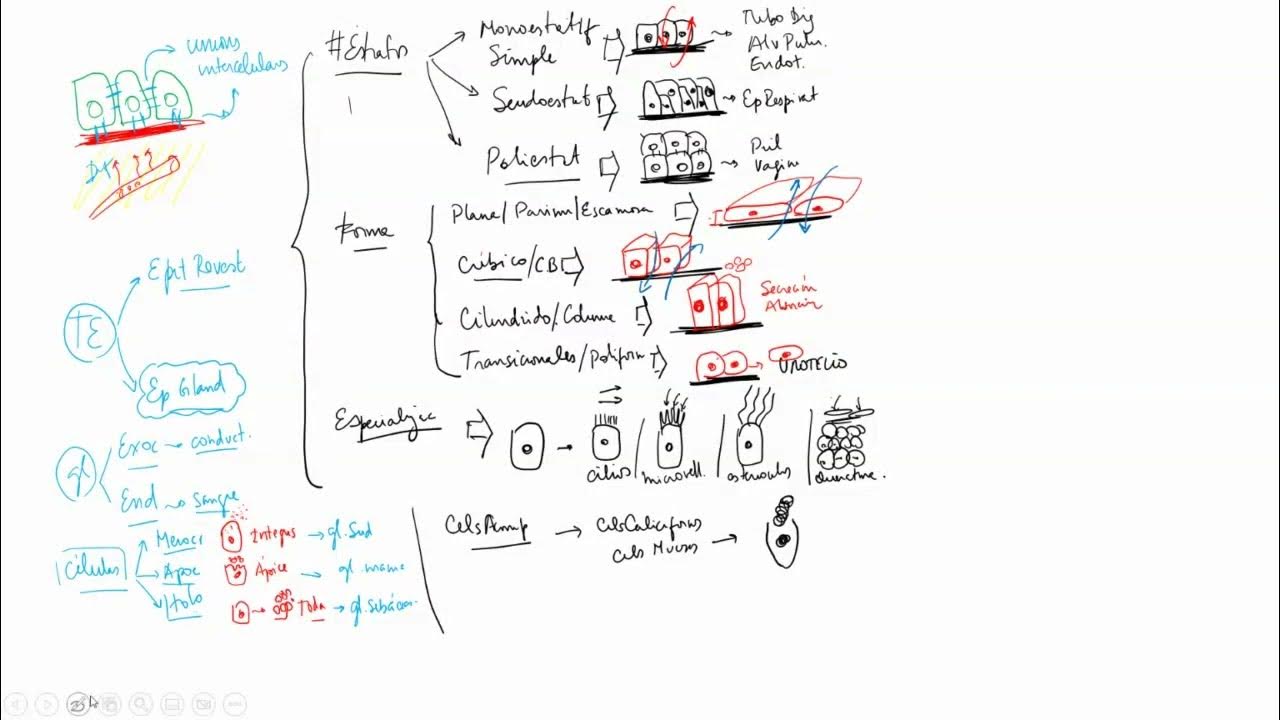 unions
intercelulars
DX
TE
Epit Revest
Ep Gland
gl
Exoc → conduct.
End → sangre
Células
Merocr Integus → gl. Sud
Apoc Ápice → gl. mama
Holo Toda → gl. Sebáceas.
#Estratos
Monoestratif
Simple
Tubo Dig
Alv Pulm.
Endot.
Seudoestrat
Ep Respirat
Poliestrat
Piel
Vagina
Forma
Plana/Parim/Escamosa
Cúbico/CB
Cilíndrido/Columna
Secreción
Absorción
Transicionales/Poliform
UROTELIO
Especializac
cilios
microvell.
estereocilios
Queratina.
Cels Acomp → Cels Caliciformes
Cels Mucosas →